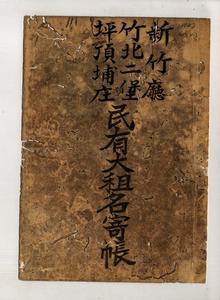 新竹廳
竹北二堡
坪頂埔庄
民有大租名寄帳